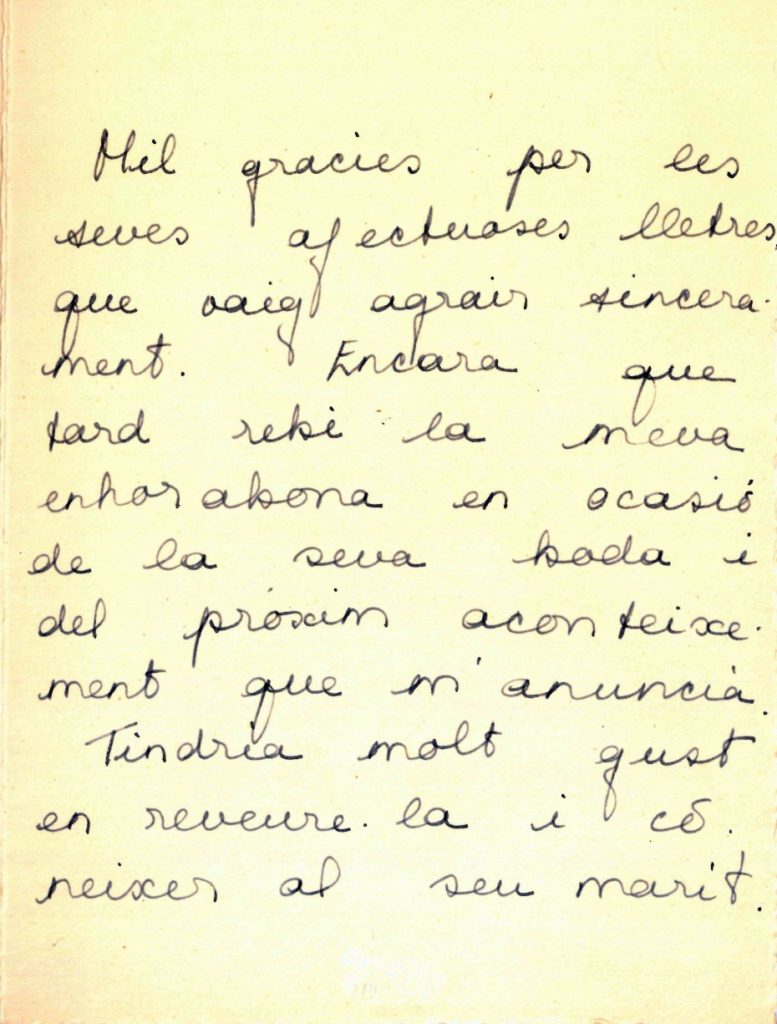 Mil gracies per les
seves afectuoses lletres,
que vaig agrair sincera-
ment. Encara que
tard rebi la meva
enhorabona en ocasió
de la seva boda i
del próxim aconteixe-
ment que m'anuncia.
Tindria molt gust
en reveure-la i co-
neixer al seu marit.